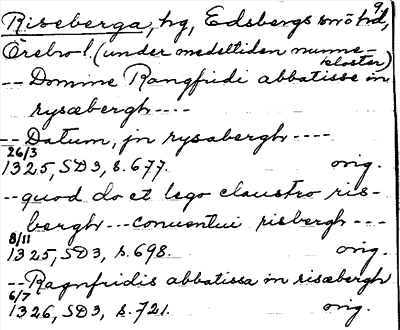 Riseberga, hg, Edsbergs snö hd, 9
Örebro l. (under medeltiden nunne-
kloster)
-- Domine Rangfridi abbatisse in
rysæbergh ----
-- Datum, jn rysabergh ----
26/3
1325, SD 3, s. 677. orig.
-- quod do et lego claustro ris-
bergh --- conuentui risbergh ---
8/11
1325, SD 3, s. 698. orig.
-- Ragnfridis abbatissa in risæbergh
6/7
1326, SD 3, s. 721. orig.